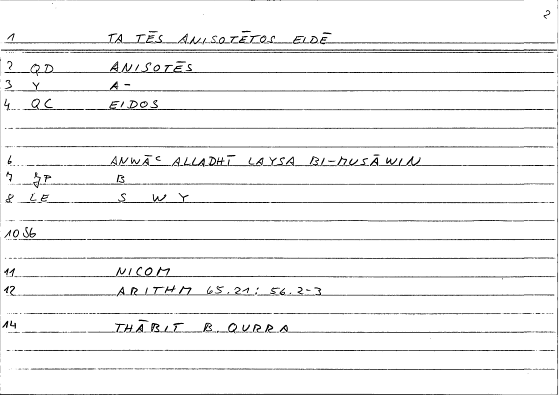 2
1 TA TĒS ANISOTĒTOS EIDĒ
2 QD ANISOTĒS
3 Y A-
4 QC EIDOS
6 ANWĀC ALLADHĪ LAYSA BI-MUSĀWIN
7 JP B
8 LE S W Y
10 S6
11 NICOM
12 ARITHM 65.21; 56.2-3
14 THĀBIT B. QURRA